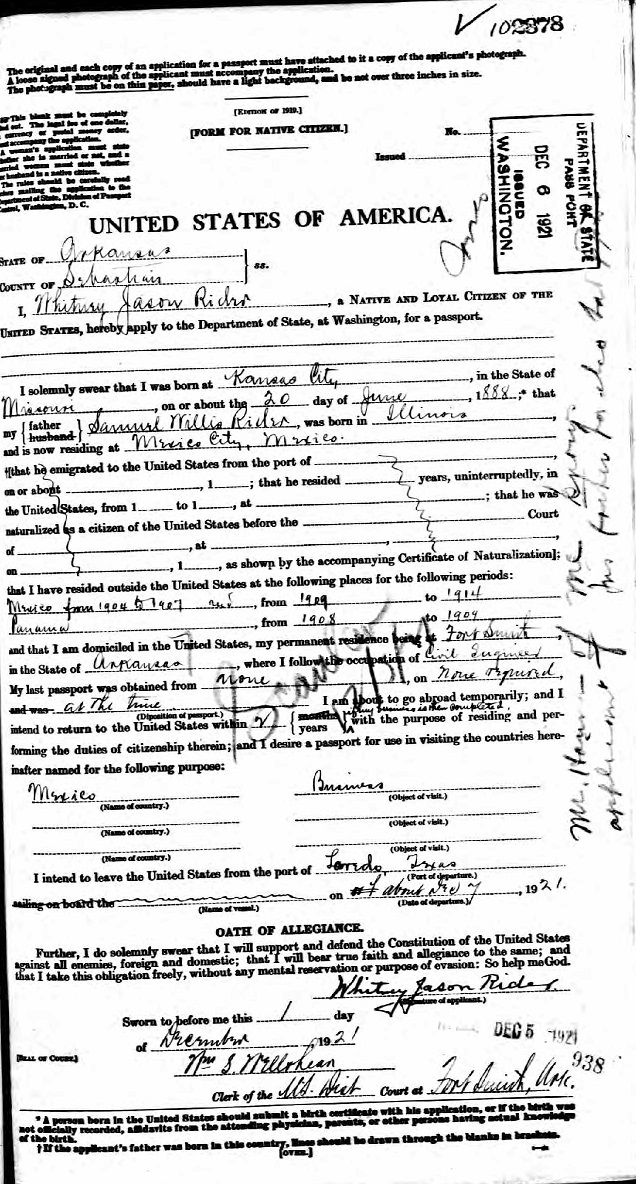 102878
The original and each copy of an application for a passport must have attached to it a copy of the applicant's photograph.
A loose signed photograph of the applicant must accompany the application.
The photograph must be on thin paper, should have a light background, and be not over three inches in size.
This blank must be completely
out. The legal fee of one dollar,
currency or postal money order,
accompany the application.
A woman's application must state
whether she is married or not, and a
married woman must state whether
husband is a native citizen.
The rules should be carefully read
before mailing the application to the
Department of State, Division of Passport
Control, Washington, D. C.
[EDITION OF 1919.]
[FORM FOR NATIVE CITIZEN.]
No.
Issued
DEPARTMENT OF STATE
PASSPORT
DEC 6 1921
ISSUED
WASHINGTON.
UNITED STATES OF AMERICA.
STATE OF Arkansas
COUNTY OF Sebastian
ss.
I, Whitney Jason Rider, a NATIVE AND LOYAL CITIZEN OF THE
UNITED STATES, hereby apply to the Department of State, at Washington, for a passport.
I solemnly swear that I was born at Kansas City, in the State of
Missouri, on or about the 20 day of June, 1888;* that
my {father husband} Samuel Willis Rider, was born in Illinois
and is now residing at Mexico City, Mexico.
†[that he emigrated to the United States from the port of
on or about , 1 ; that he resided years, uninterruptedly, in
the United States, from 1 to 1 , at ; that he was
naturalized as a citizen of the United States before the Court
of , at ,
on , 1 , as shown by the accompanying Certificate of Naturalization];
that I have resided outside the United States at the following places for the following periods:
Mexico from 1904 to 1907 and, from 1909 to 1914
Panama, from 1908 to 1909
and that I am domiciled in the United States, my permanent residence being at Fort Smith
in the State of Arkansas, where I follow the occupation of Civil Engineer
My last passport was obtained from none, on None required,
and was at the time I am about to go abroad temporarily; and I
(Disposition of passport.)
my business is then completed
intend to return to the United States within 2 {months years} with the purpose of residing and per-
forming the duties of citizenship therein; and I desire a passport for use in visiting the countries here-
inafter named for the following purpose:
Mexico Business
(Name of country.) (Object of visit.)
(Name of country.) (Object of visit.)
(Name of country.) (Object of visit.)
I intend to leave the United States from the port of Laredo, Texas
(Port of departure.)
sailing on board the on about Dec 7, 1921.
(Name of vessel.) (Date of departure.)
OATH OF ALLEGIANCE.
Further, I do solemnly swear that I will support and defend the Constitution of the United States
against all enemies, foreign and domestic; that I will bear true faith and allegiance to the same; and
that I take this obligation freely, without any mental reservation or purpose of evasion: So help me God.
Whitney Jason Rider
(Signature of applicant.)
Sworn to before me this 1 day
of December, 1921
DEC 5 1921
[SEAL OF COURT.]
Wm S. Wellshear
938
Clerk of the US Dist Court at Fort Smith, Ark.
* A person born in the United States should submit a birth certificate with his application, or if the birth was
not officially recorded, affidavits from the attending physician, parents, or other persons having actual knowledge
of the birth.
† If the applicant's father was born in this country, lines should be drawn through the blanks in brackets.
[OVER.]